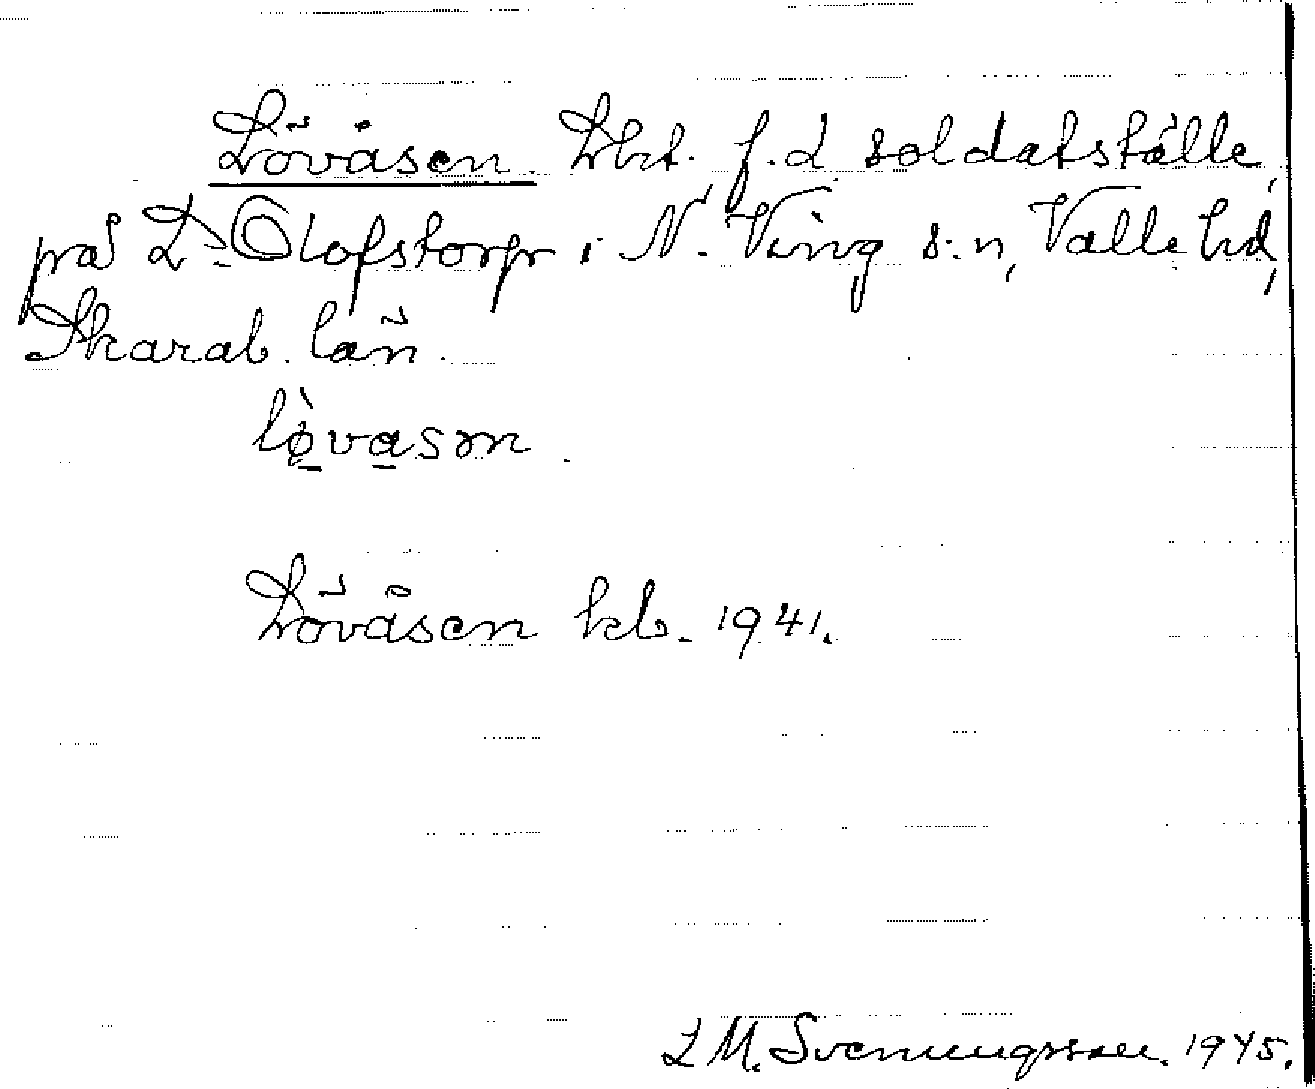 Lövåsen. Lht. f.d soldatställe
på L:a Olofstorp i N. Ving s:n, Valle hd,
Skarab. län.
lø̀vasɷn.
Lövåsen kb. 1941.
L M. Svenungsson. 1945.